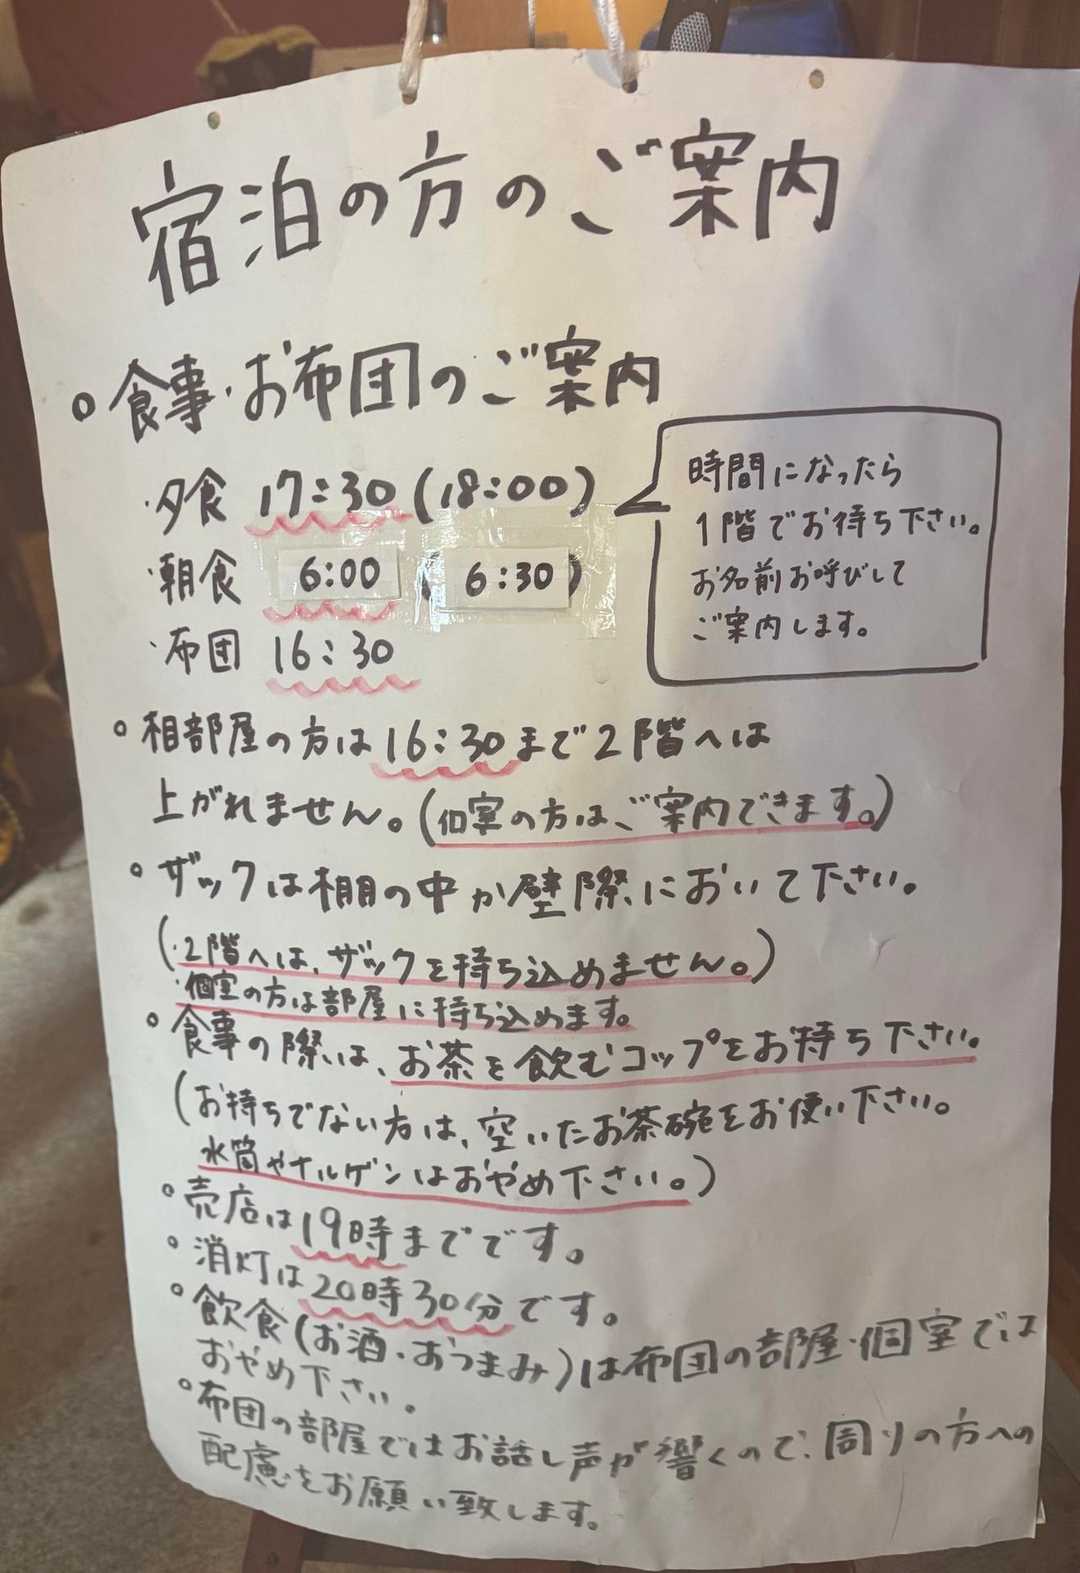 宿泊の方のご案内
○食事・お布団のご案内
・夕食 17:30(18:00)
・朝食 6:00 (6:30)
・布団 16:30
時間になったら
1階でお待ち下さい。
お名前お呼びして
ご案内します。
○相部屋の方は16:30まで2階へは
上がれません。(個室の方はご案内できます。)
○ザックは棚の中か壁際において下さい。
(・2階へは、ザックを持ち込めません。)
・個室の方は部屋に持ち込めます。
○食事の際は、お茶を飲むコップをお持ち下さい。
(お持ちでない方は、空いたお茶碗をお使い下さい。
水筒やナルゲンはおやめ下さい。)
○売店は19時までです。
○消灯は20時30分です。
○飲食(お酒・おつまみ)は布団の部屋・個室では
おやめ下さい。
○布団の部屋ではお話し声が響くので、周りの方への
配慮をお願い致します。